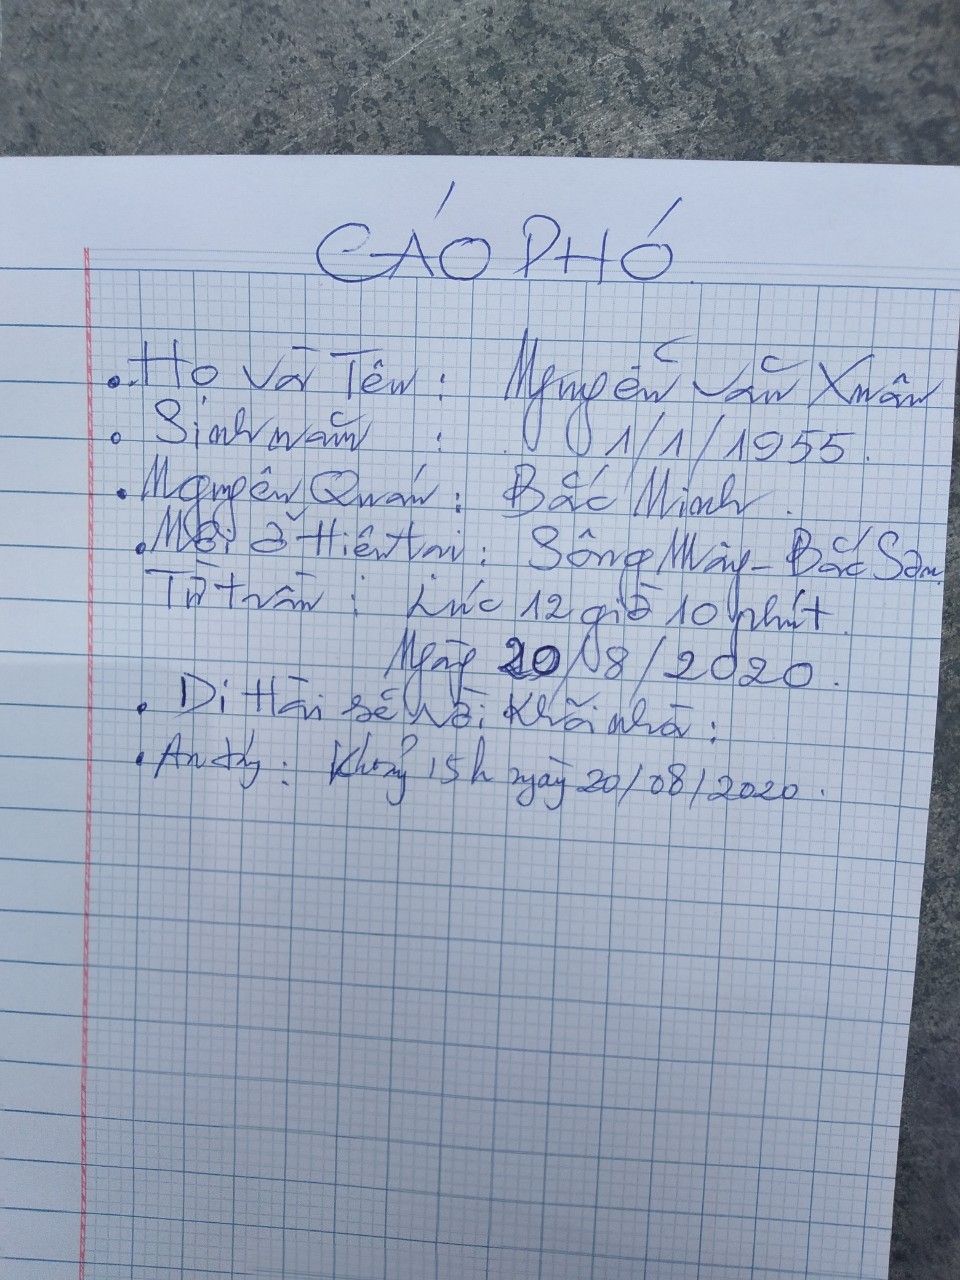 CÁO PHÓ
. Họ và Tên : Nguyễn Văn Xuân
. Sinh năm : 1/1/1955.
. Nguyên Quán : Bắc Ninh.
. Nơi ở Hiện tại : Sông Mây - Bắc Sơn
Từ trần : Lúc 12 giờ 10 phút.
Ngày 20/8/2020.
. Di Hài sẽ rời Khỏi nhà :
. An táng : 15h ngày 20/08/2020.